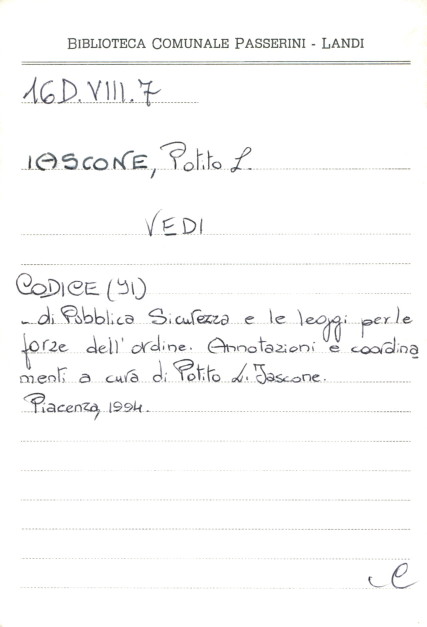 BIBLIOTECA COMUNALE PASSERINI - LANDI
16D.VIII.7
IASCONE, Potito L.
VEDI
CODICE (IL)
- di Pubblica Sicurezza e le leggi per le
forze dell'ordine. Annotazioni e coordina
menti a cura di Potito L. Iascone.
Piacenza, 1994.